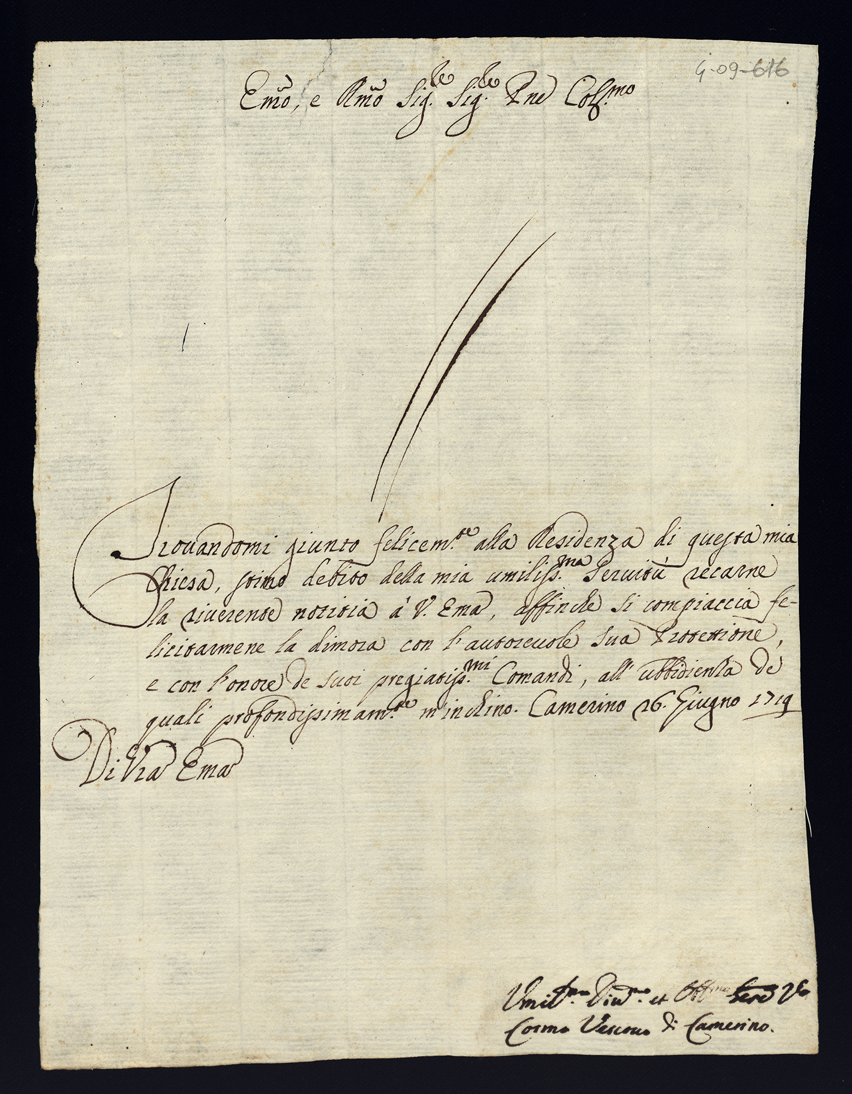 4-09-616
Emo, e Rmo Sig.re Sig.re Pne Col.mo
Trovandomi giunto felicem.te alla Residenza di questa mia
Chiesa, stimo debito della mia umiliss.ma Servitù recarne
la riverente notitia à V. Ema, affinche si compiaccia fe-
licitarmene la dimora con l'autorevole sua Protettione,
e con l'onore de suoi pregiatiss.mi Comandi, all'ubbidienza de
quali profondissimam.te m'inchino. Camerino 16. Giugno 1719
Di Vra Ema
Umil.mo Div.mo et Obl.mo Serv.
Cosmo Vescovo di Camerino.